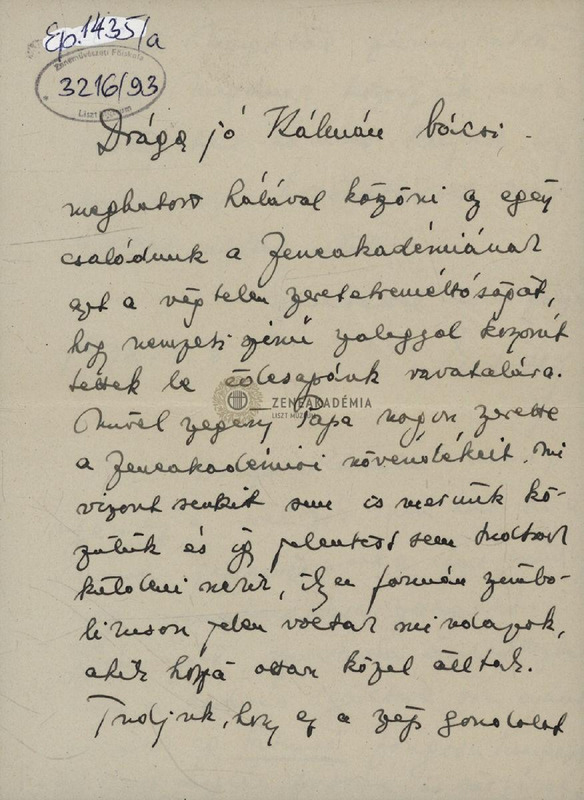 Ep. 1435/a
Zeneművészeti Főiskola
3216/93
Liszt Múzeum
Drága jó Kálmán bácsi.
meghatott hálával köszöni az egész
családunk a Zeneakadémiának
azt a végtelen szeretetreméltóságát,
hogy nemzeti színű szalaggal koszorút
tettek le édesapánk ravatalára.
ZENEAKADÉMIA
LISZT MÚZEUM
Mivel szegény Papa nagyon szerette
a Zeneakadémiai növendékeit, mi
viszont senkit sem is merünk kö-
zülük és így jelentést sem tudtunk
küldeni nekik, ilyen formán szimbo-
likuson jelen voltak mindazok,
akik hozzá olyan közel álltak.
Tudjuk, hogy ez a szép gondolat